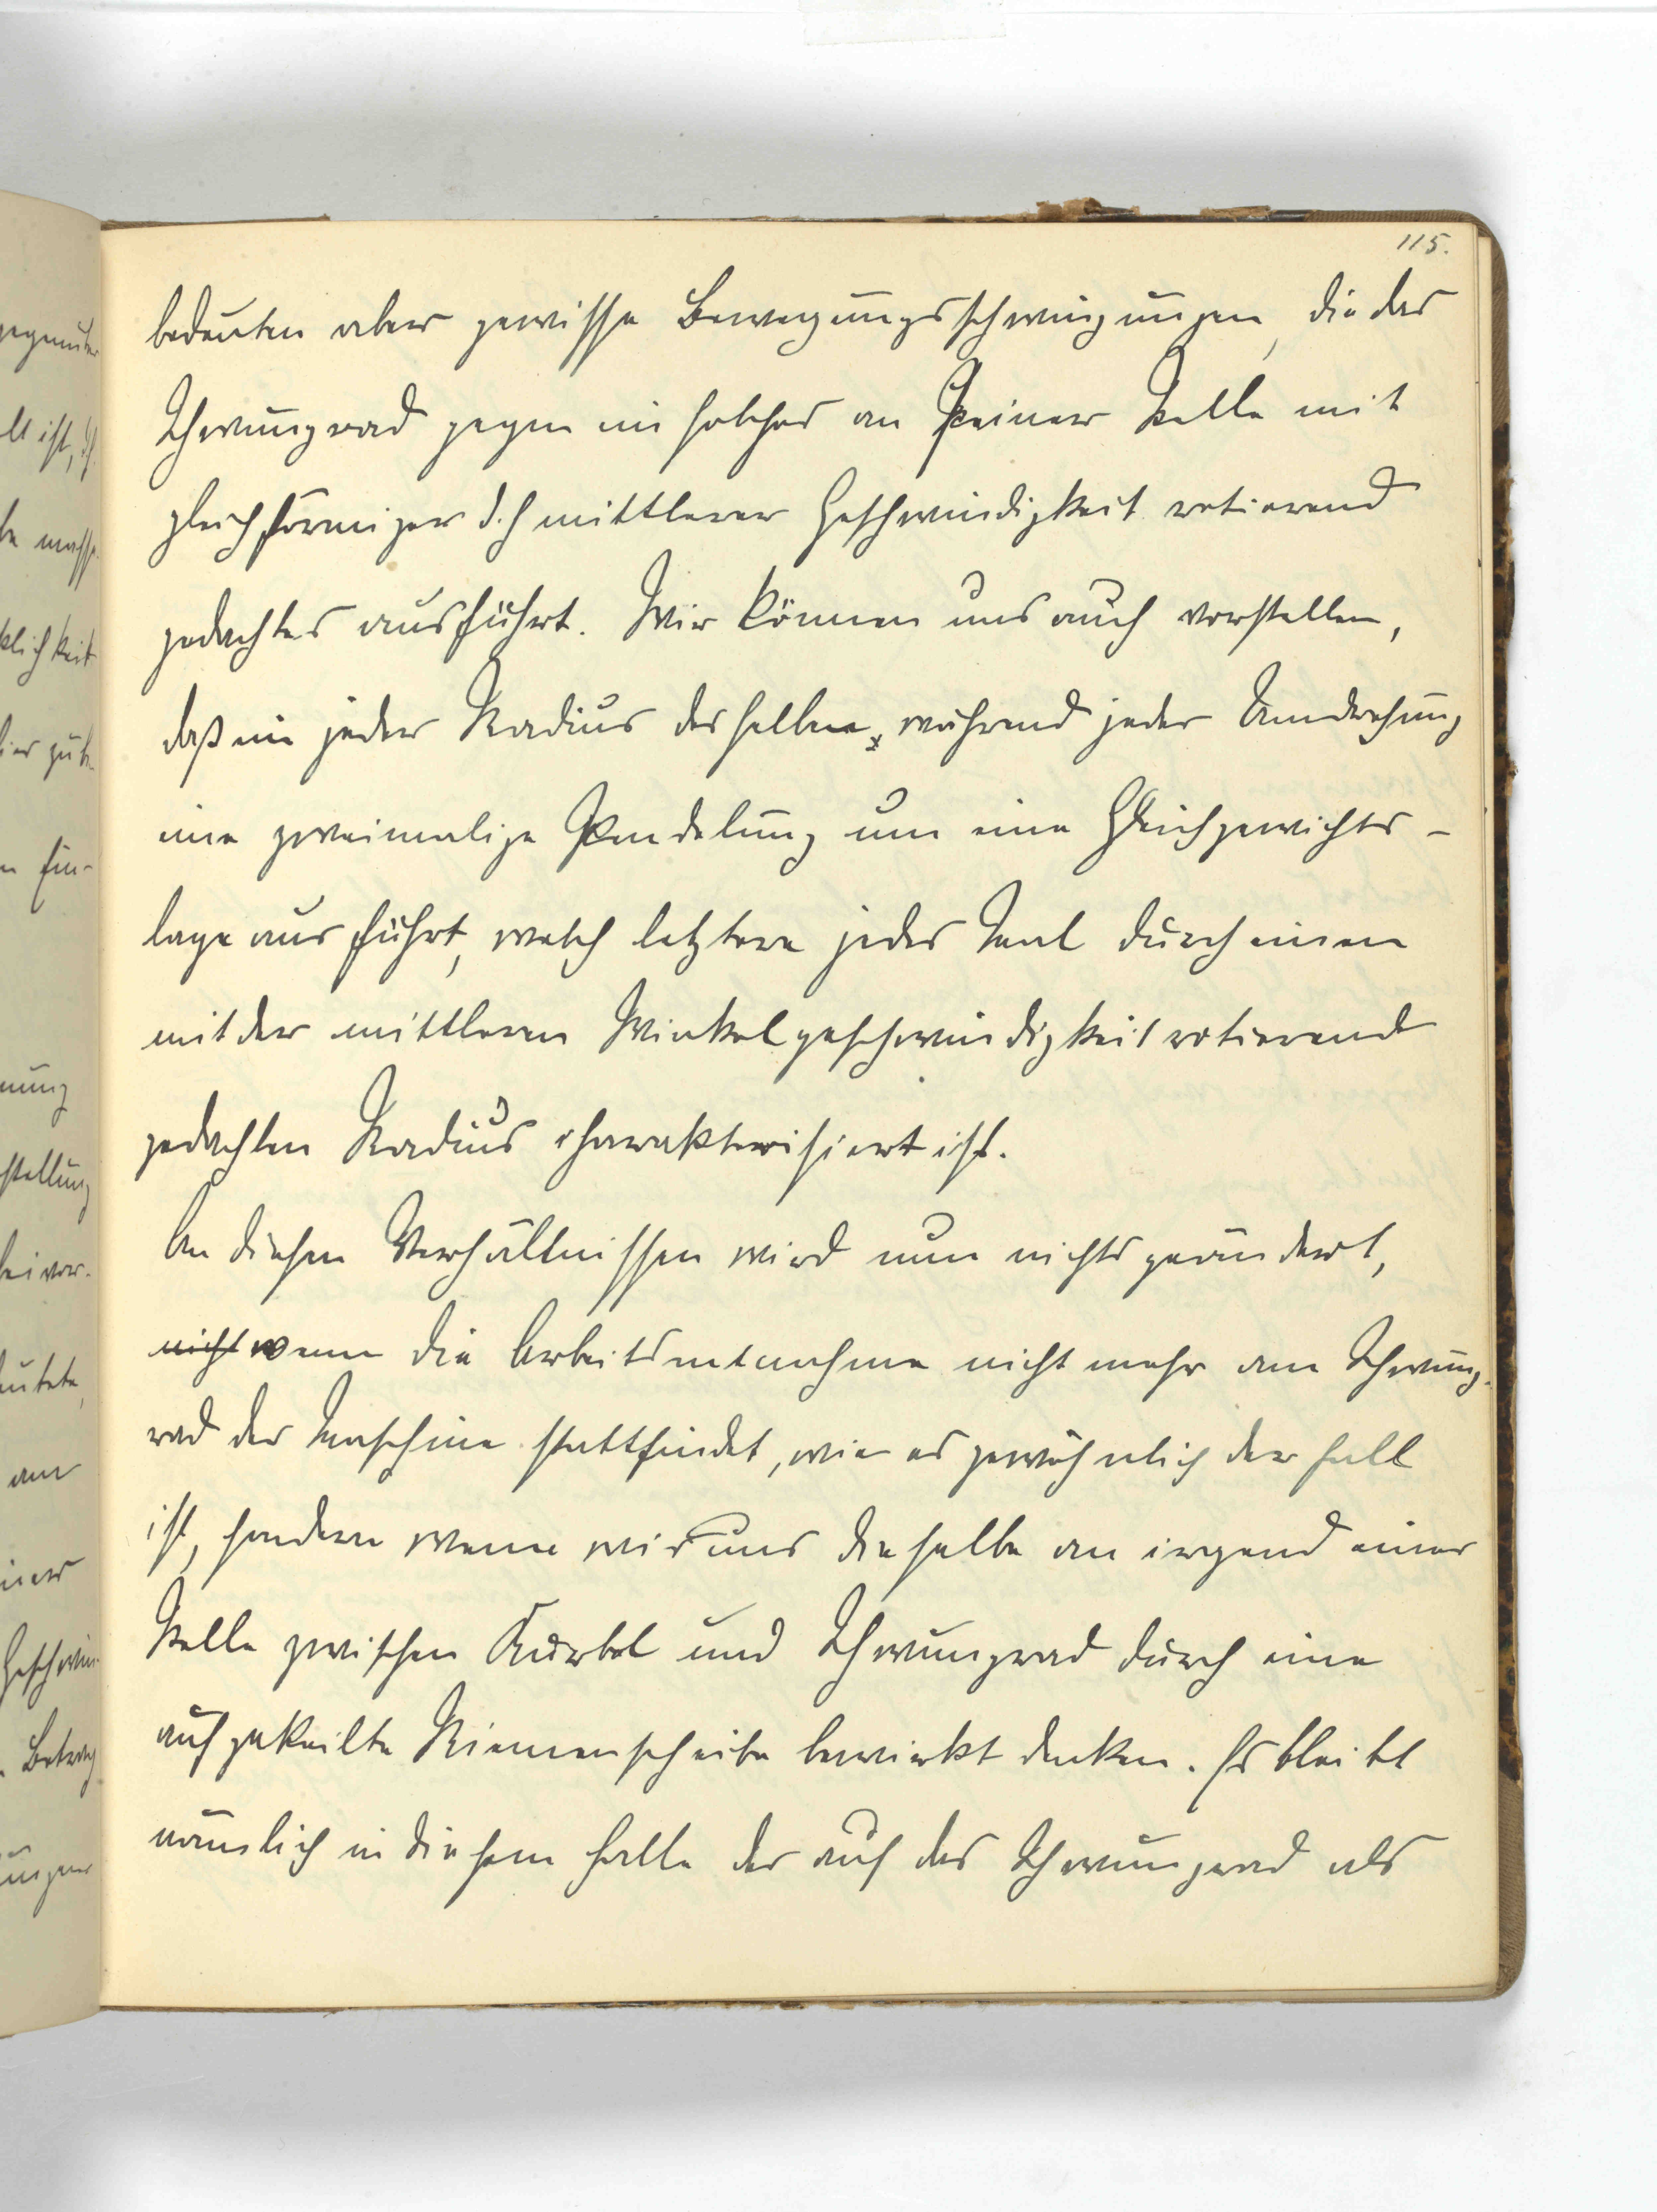 115.
bedeuten aber gewisse Bewegungsschwingungen, die das
Schwungrad gegen ein solches an seiner Stelle mit
gleichförmiger d.h mittlerer Geschwindigkeit rotierend
gedachtes ausführt. Wir können uns auch vorstellen,
daß ein jeder Radius desselben, während jeder Umdrehung
eine zweimalige Pendelung um eine Gleichgewichts-
lage ausführt, welch letztere jedes Mal durch einen
mit der mittleren Winkelgeschwindigkeit rotierend
gedachten Radius charakterisiert ist.
An diesen Verhältnissen wird nun nichts geändert,
nicht wenn die Arbeitsentnahme nicht mehr am Schwung-
rad der Maschine stattfindet, wie es gewöhnlich der Fall
ist, sondern wenn wir uns dieselbe an irgend einer
Stelle zwischen Kurbel und Schwungrad durch eine
aufgekeilte Riemenscheibe bewirkt denken. Es bleibt
nämlich in diesem Falle der auf das Schwungrad als
gegenüber
lt ist, d.h
be masse
klichkeit
hier zu be-
n Ein-
nung
stellung
bei vor-
deutete,
am
iner
Geschwin-
Betrag
ungen